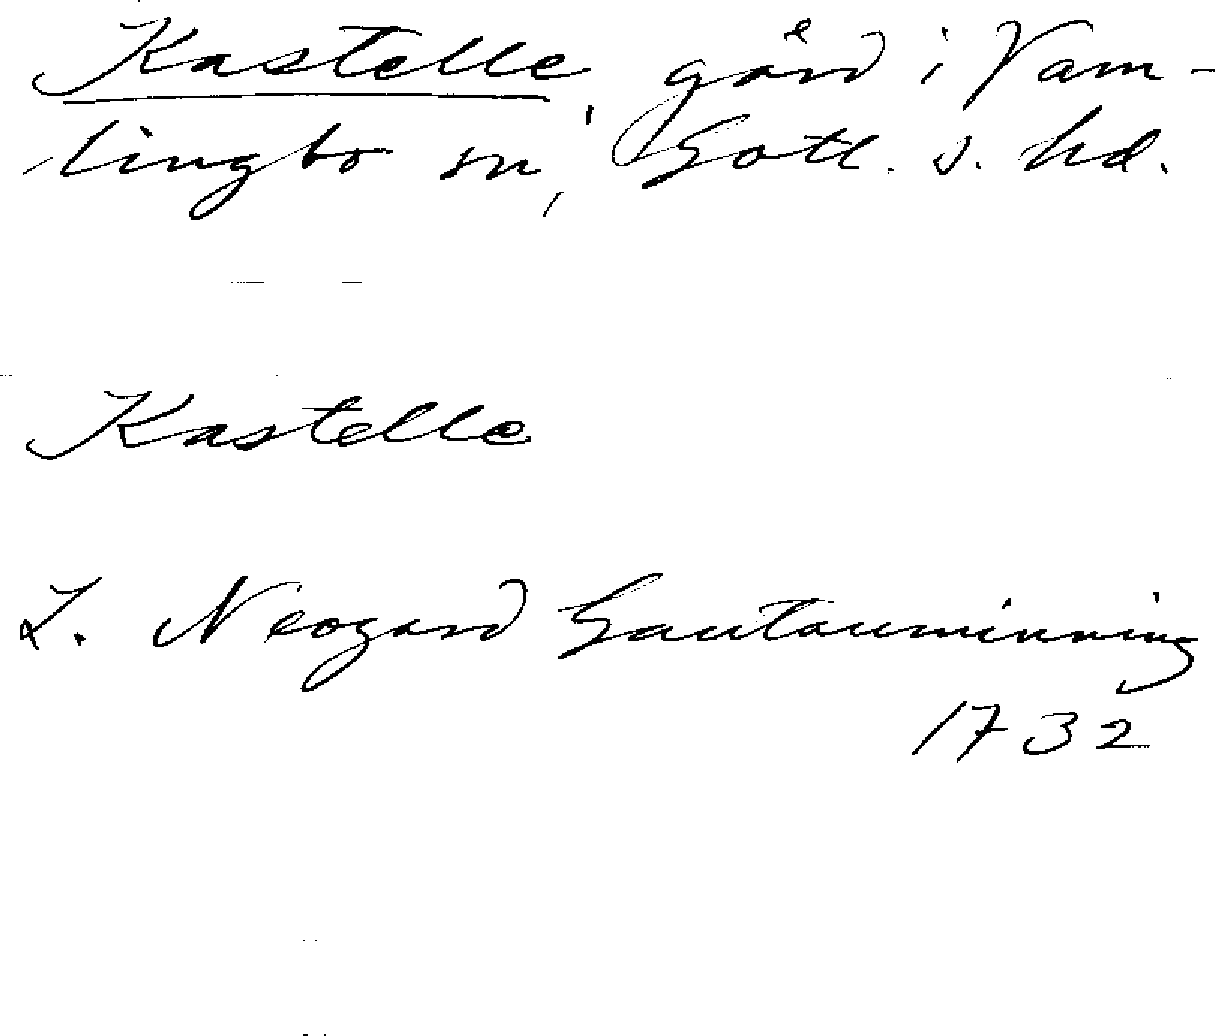 Kastelle, gård i Vam-
lingbo sn, Gotl. s. hd.
Kastelle
L. Neogard Gautauminning
1732